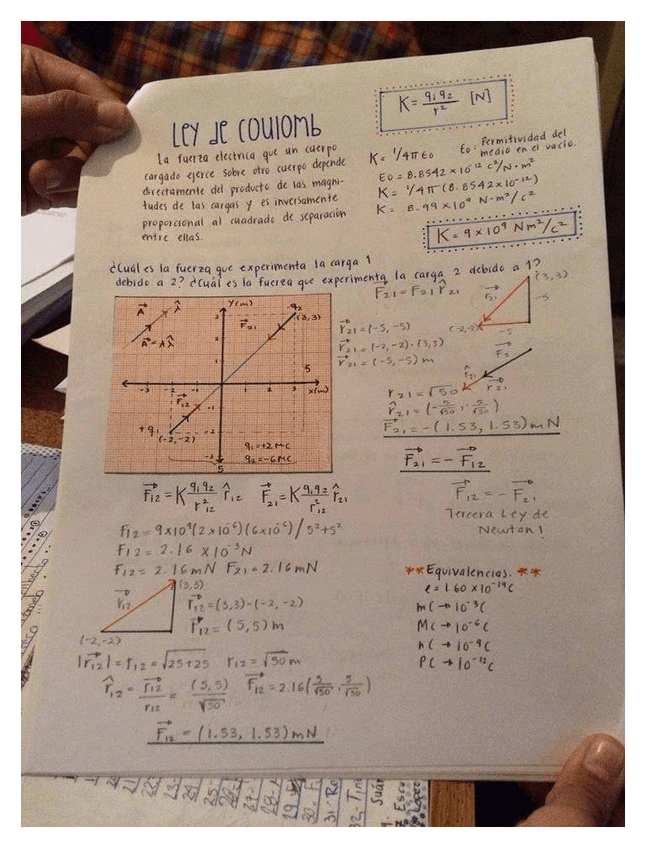 LEY de COULOMB
La fuerza electrica que un cuerpo
cargado ejerce sobre otro cuerpo depende
directamente del producto de las magni-
tudes de las cargas y es inversamente
proporcional al cuadrado de separación
entre ellas.
K = q₁q₂/r² [N]
K = 1/4π Eo
Eo: Permitividad del
medio en el vacío.
Eo = 8.8542 × 10⁻¹² C²/N·m²
K = 1/4π (8.8542×10⁻¹²)
K = 8.99 × 10⁹ N·m²/c²
K = 9×10⁹ Nm²/c²
¿Cuál es la fuerza que experimenta la carga 1
debido a 2? ¿Cuál es la fuerza que experimenta la carga 2 debido a 1?
y(m)
q₂
(3,3)
A⃗ λ̂
A⃗ = Aλ̂
F⃗₂₁
3
2
1
5
-3 -2 -1 1 2 3 x(m)
F⃗₁₂
-1
+q₁
-2
(-2,-2)
-3
5
q₁=+2MC
q₂=-6MC
F⃗₂₁ = F₂₁ r̂₂₁
(3,3)
-5
(-2,-2)
-5
r⃗₂₁ = (-5, -5)
r⃗₂₁ = (-2,-2)-(3,3)
r⃗₂₁ = (-5,-5) m
r̂₂₁
r⃗₂₁
r₂₁ = √50
r̂₂₁ = (-5/√50, -5/√50)
F⃗₂₁ = -(1.53, 1.53) mN
F⃗₂₁ = - F⃗₁₂
F⃗₁₂ = - F⃗₂₁
Tercera Ley de
Newton!
F⃗₁₂ = K q₁q₂/r²₁₂ r̂₁₂ F⃗₂₁ = K q₁q₂/r²₁₂ r̂₂₁
F₁₂ = 9×10⁹(2×10⁻⁶)(6×10⁻⁶)/5²+5²
F₁₂ = 2.16 ×10⁻³N
F₁₂ = 2.16mN F₂₁ = 2.16mN
(3,3)
r⃗₁₂
(-2,-2)
r⃗₁₂ = (3,3)-(-2,-2)
r⃗₁₂ = (5,5) m
|r⃗₁₂| = r₁₂ = √25+25 r₁₂ = √50 m
r̂₁₂ = r⃗₁₂/r₁₂ = (5,5)/√50 F⃗₁₂ = 2.16(5/√50, 5/√50)
F⃗₁₂ = (1.53, 1.53) mN
**Equivalencias.**
e = 1.60 × 10⁻¹⁹C
mC → 10⁻³C
MC → 10⁻⁶C
nC → 10⁻⁹C
PC → 10⁻¹²C